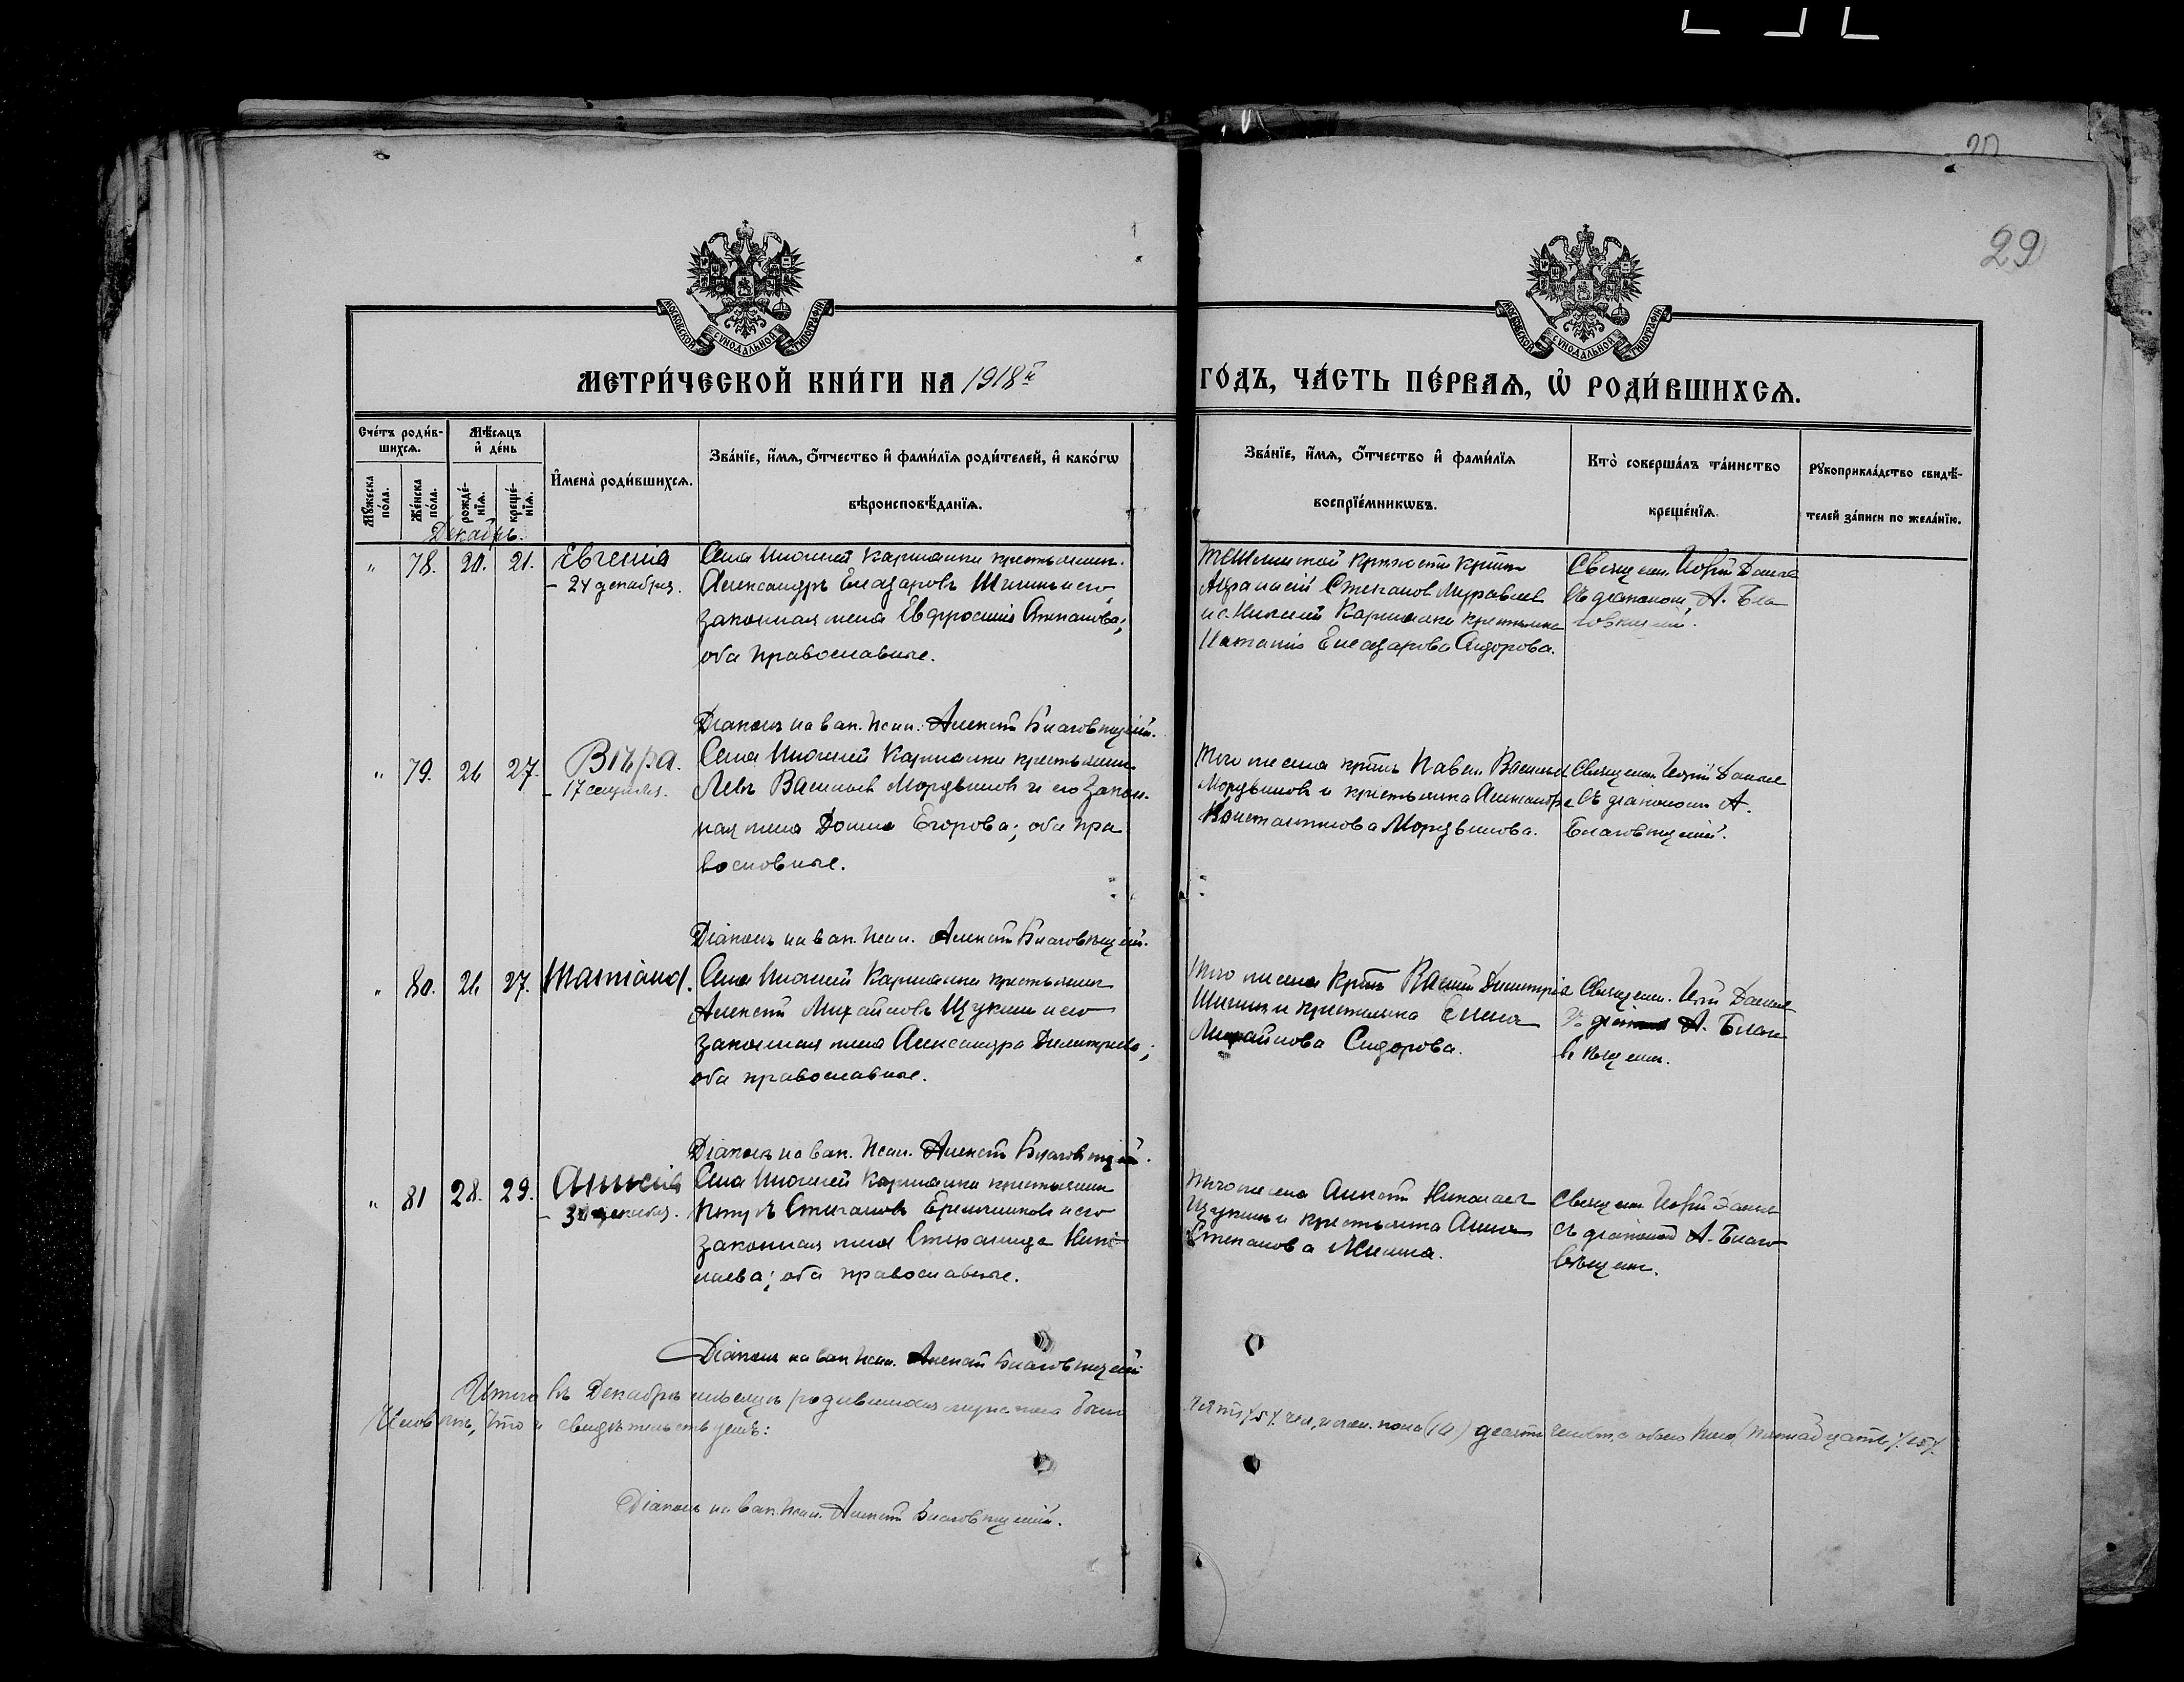 29
МОСКОВСКОЙ СѴНОДАЛЬНОЙ ТИПОГРАФІИ
МОСКОВСКОЙ СѴНОДАЛЬНОЙ ТИПОГРАФІИ
МЕТРИ́ЧЕСКОЙ КНИ́ГИ НА 1918й ГО́ДЪ, ЧА́СТЬ ПЕ́РВАЯ, Ѡ РОДИ́ВШИХСЯ.
Сче́тъ роди́в-
шихся.
Му́жеска по́ла.
Же́нска по́ла.
Мѣ́сяцъ
и҆ де́нь
рожде́-
нія.
креще́-
нія.
И҆мена̀ роди́вшихся.
Зва́нїе, и҆́мя, ѻ҆́тчество и҆ фами́лїя роди́телей, и҆ како́гѡ
вѣроисповѣ́данїя.
Зва́нїе, и҆́мя, ѻ҆́тчество и҆ фами́лїя
воспрїе́мникѡвъ.
Кто̀ соверша́лъ та́инство
креще́нїя.
Рꙋкоприкла́дство свидѣ́-
телей за́писи по жела́нїю.
Декабрь.
" 78. 20. 21. Евгенія
- 24 декабря.
Села Нижней Кармалки крестьянинъ
Александръ Елеазаровъ Шишкин и его
законная жена Евфросинія Степанова;
оба православные.
Афанасій Степанов Муравьев
и с. Нижней Кармалки крестьянка
Наталія Елеазарова Сидорова.
Священ. Георгій
съ діаконом А. Бла
говѣщен.
Діаконъ на вак. псал. Алексѣй Благовѣщенскій.
" 79. 26 27. Вѣра.
- 17 сентября.
Села Нижней Кармалки крестьянин
Левъ Васильев Мордвинов и его закон.
ная жена Домна Егорова; оба пра
вославные.
Того же села крѣнъ Павел Васильев
Мордвинов и крестьянка Александра
Константинова Мордвинова.
Священ. Георгій
съ діаконом А.
Благовѣщенскій.
Діаконъ на вак. псал. Алексѣй Благовѣщенскій.
" 80. 26 27. Татіана.
Села Нижней Кармалки крестьянин
Алексѣй Михайловъ Щукин и его
законная жена Александра Димитріева;
оба православные.
Того же села крѣнъ Василій Димитріев
Шишкин и крестьянка Елена
Михайлова Сидорова.
Священ. Георгій
А. Благо
вѣщен.
Діаконъ на вак. псал. Алексѣй Благовѣщенскій.
" 81 28. 29. Анисія
- 30 декабря.
Села Нижней Кармалки крестьянин
Петръ и его
законная жена Стефанида Нико
лаева; оба православные.
Того же села Алексѣй Николаев
Щукин и крестьянка Анна
Степанова
Священ. Георгій
съ діаконом А. Благо
вѣщен.
Діаконъ на вак. псал. Алексѣй Благовѣщенскій.
Итого въ Декабрѣ мѣсяцѣ родившихся муж. пола было пять /5/ чел., и жен. пола (10) десять человѣкъ, а обоего пола пятнадцать /15/
человѣкъ, что и свидѣтельствуемъ:
Діаконъ на вак. псал. Алексѣй Благовѣщенскій.